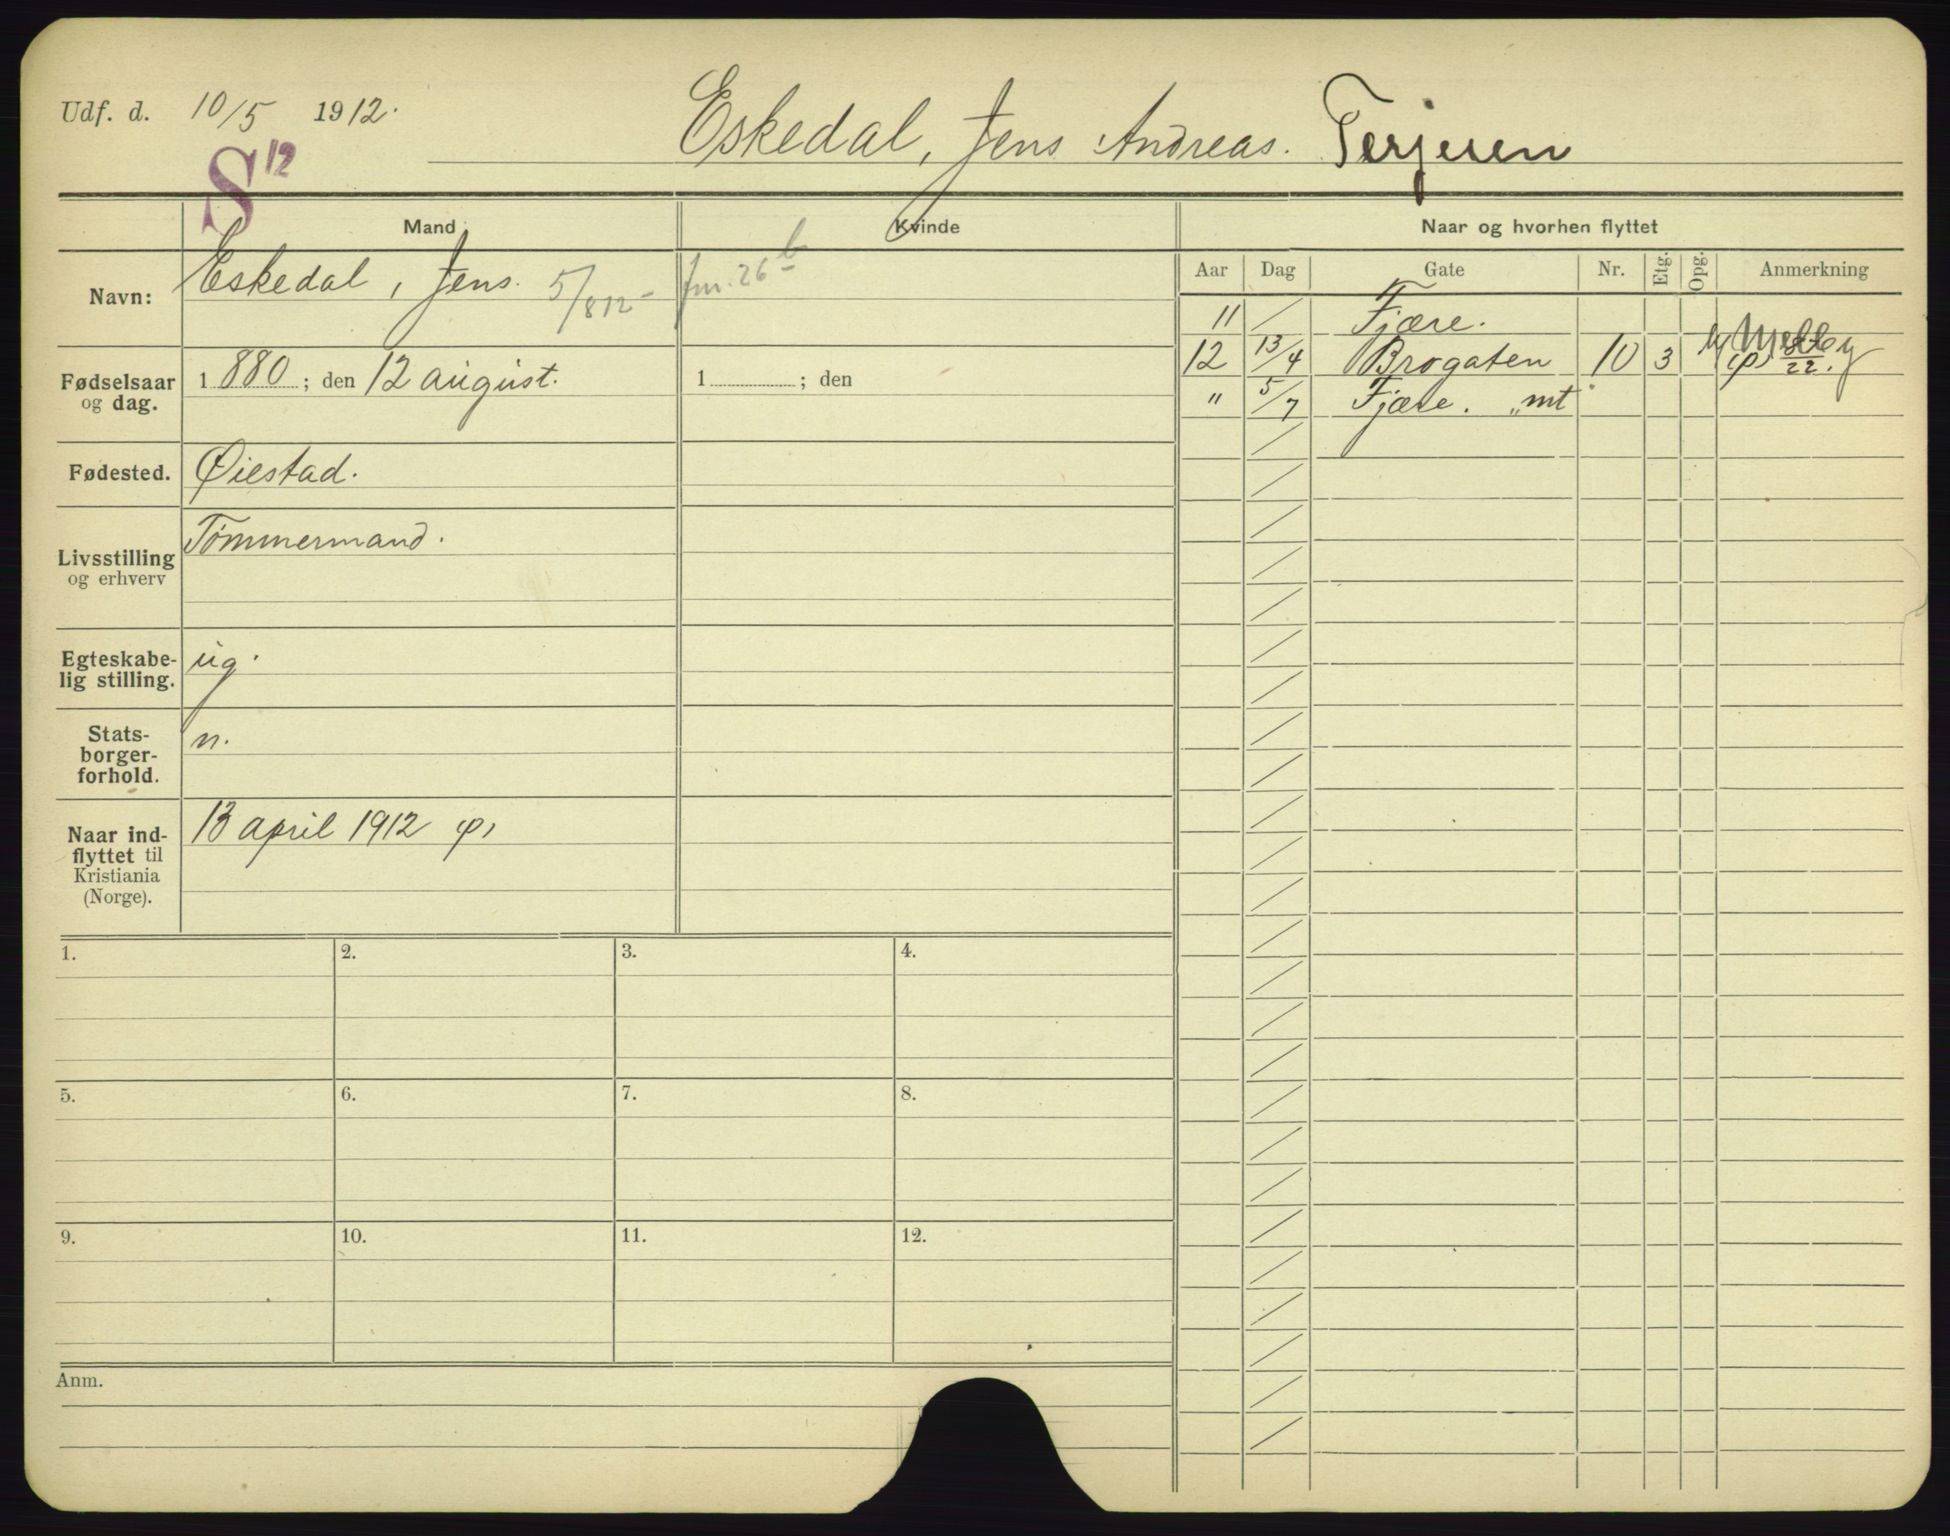 Udf. d. 10/5 1912.
Eskedal, Jens Andreas. Terjesen
S 12
Mand
Kvinde
Naar og hvorhen flyttet
Navn:
Eskedal, Jens. 5/8 12
26
Aar Dag Gate Nr. Etg. Opg. Anmerkning
11 / Fjære.
12 13/4 Brogaten 10 3 (p) 8/22.
" 5/7 Fjære. "mt"
Fødselsaar og dag.
1880; den 12 august.
1 ; den
Fødested.
Øiestad.
Livsstilling og erhverv
Tømmermand.
Egteskabe-
lig stilling.
ug.
Stats-
borger-
forhold.
n.
Naar ind-
flyttet til
Kristiania
(Norge).
13 april 1912 (p)
1. 2. 3. 4.
5. 6. 7. 8.
9. 10. 11. 12.
Anm.